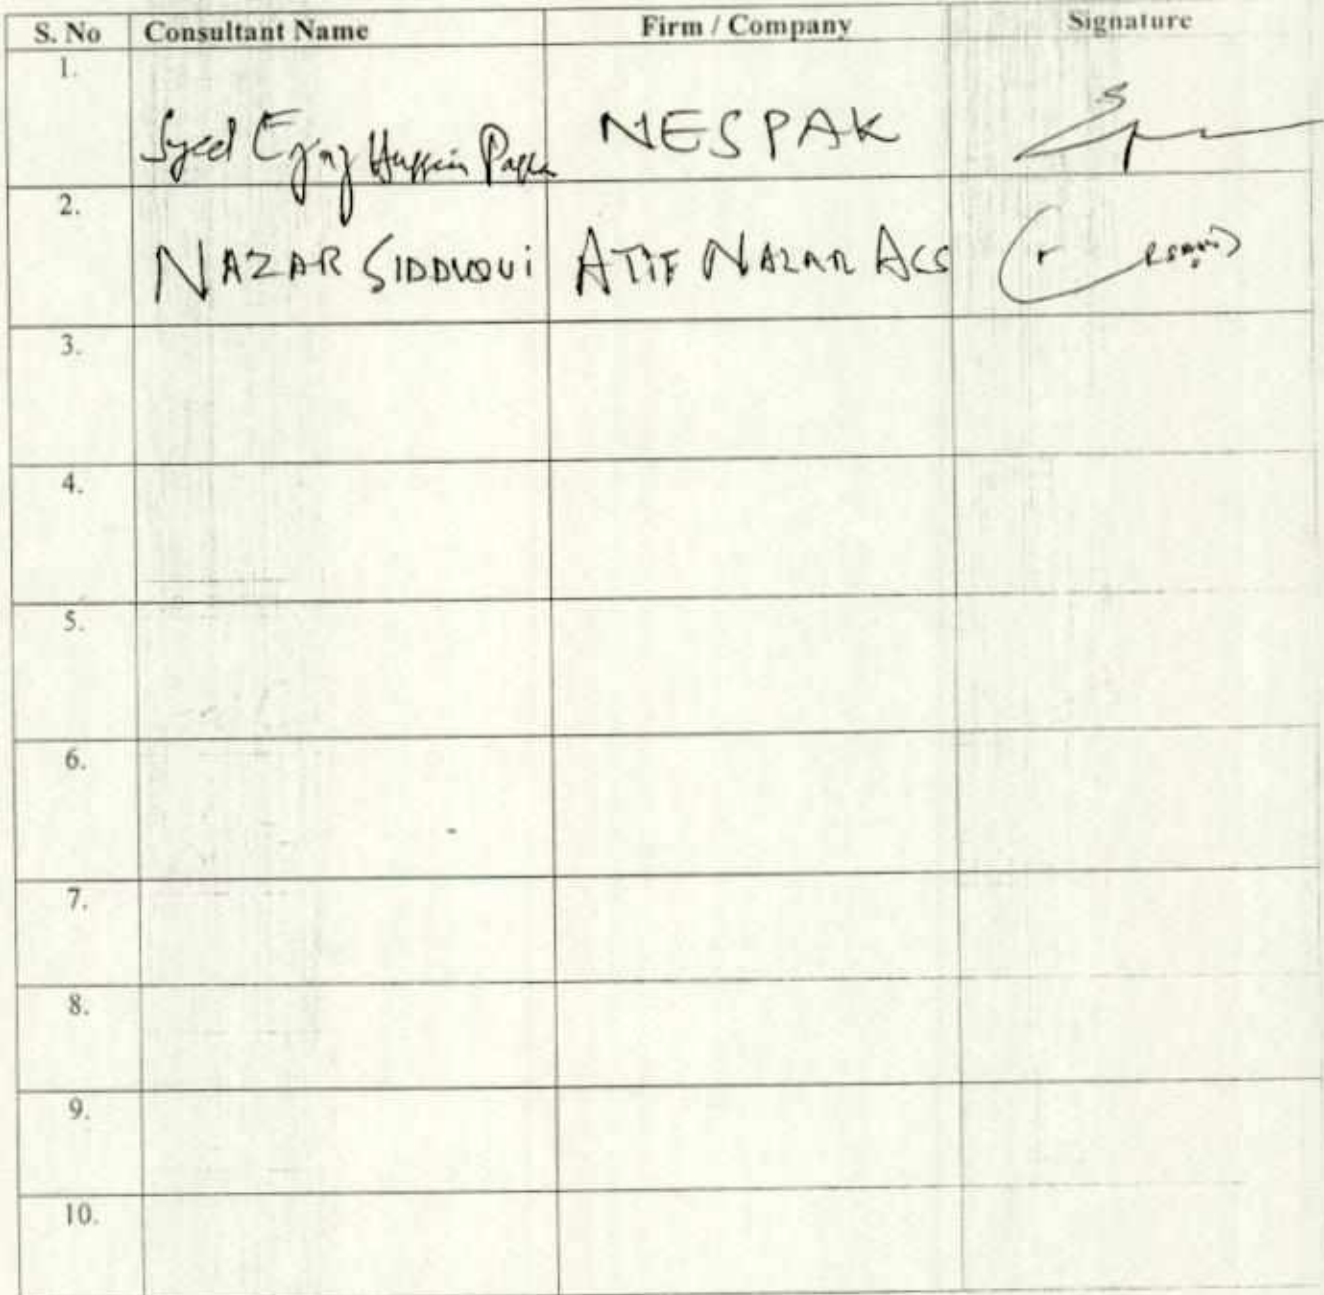 S. No Consultant Name Firm / Company Signature
1.
Syed Ejaz Hussain NESPAK
2.
NAZAR SIDDIQUI ATIF NAZAR ACS
3.
4.
5.
6.
7.
8.
9.
10.